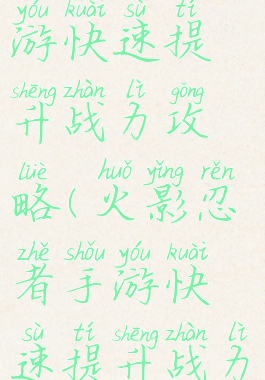 yóu kuài sù tí
游快速提
shēng zhàn lì gōng
升战力攻
lüè huǒ yǐng rěn
略(火影忍
zhě shǒu yóu kuài
者手游快
sù tí shēng zhàn lì
速提升战力